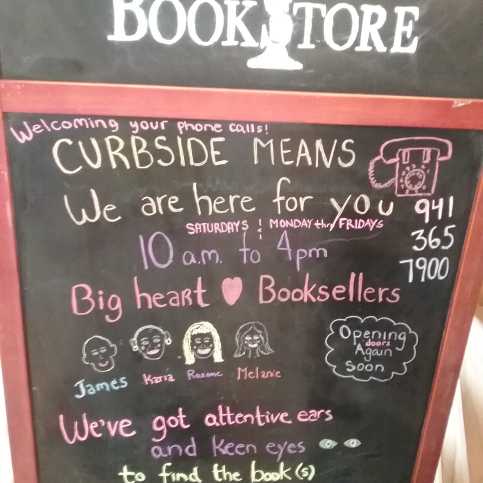 BOOKSTORE
Welcoming your phone calls!
CURBSIDE MEANS
We are here for you
941
365
7900
SATURDAYS & MONDAY thru FRIDAYS
10 a.m. to 4pm
Big heart Booksellers
James Karia Roxanne Melanie
Opening
doors
Again
Soon
We've got attentive ears
and Keen eyes
to find the book(s)